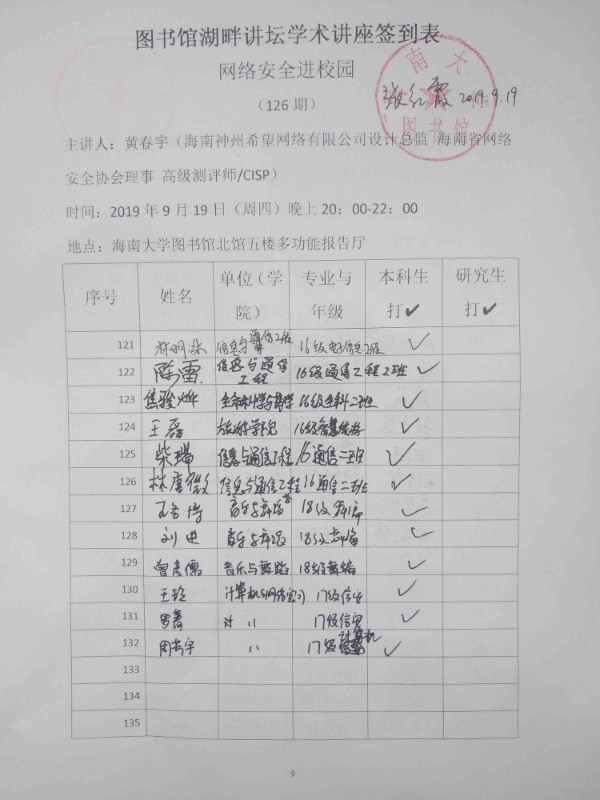 图书馆湖畔讲坛学术讲座签到表
网络安全进校园
（126 期）
南大
图书馆
2019.9.19
主讲人：黄春宇（海南神州希望网络有限公司设计总监 海南省网络
安全协会理事 高级测评师/CISP）
时间：2019 年 9 月 19 日（周四）晚上 20：00-22：00
地点：海南大学图书馆北馆五楼多功能报告厅
序号 姓名 单位（学院） 专业与年级 本科生打✔ 研究生打✔
121 信息与通信工程 16级电子信息工程 ✓
122 陈雷 信息与通信工程 16级通信工程2班 ✓
123 生命科学与药学 16级生科二班 ✓
124 王磊 旅游学院 16级 ✓
125 柴瑞 信息与通信工程 16通信二班 ✓
126 林唐微 信息与通信工程 16通信二班 ✓
127 音乐与舞蹈 18级舞编 ✓
128 刘进 音乐与舞蹈 18级舞编 ✓
129 音乐与舞蹈 18级舞编 ✓
130 王珍 计算机与网络空间 17级信安 ✓
131 计 〃 17级信安 ✓
132 周哲宇 〃 17级计算机 ✓
133
134
135
9